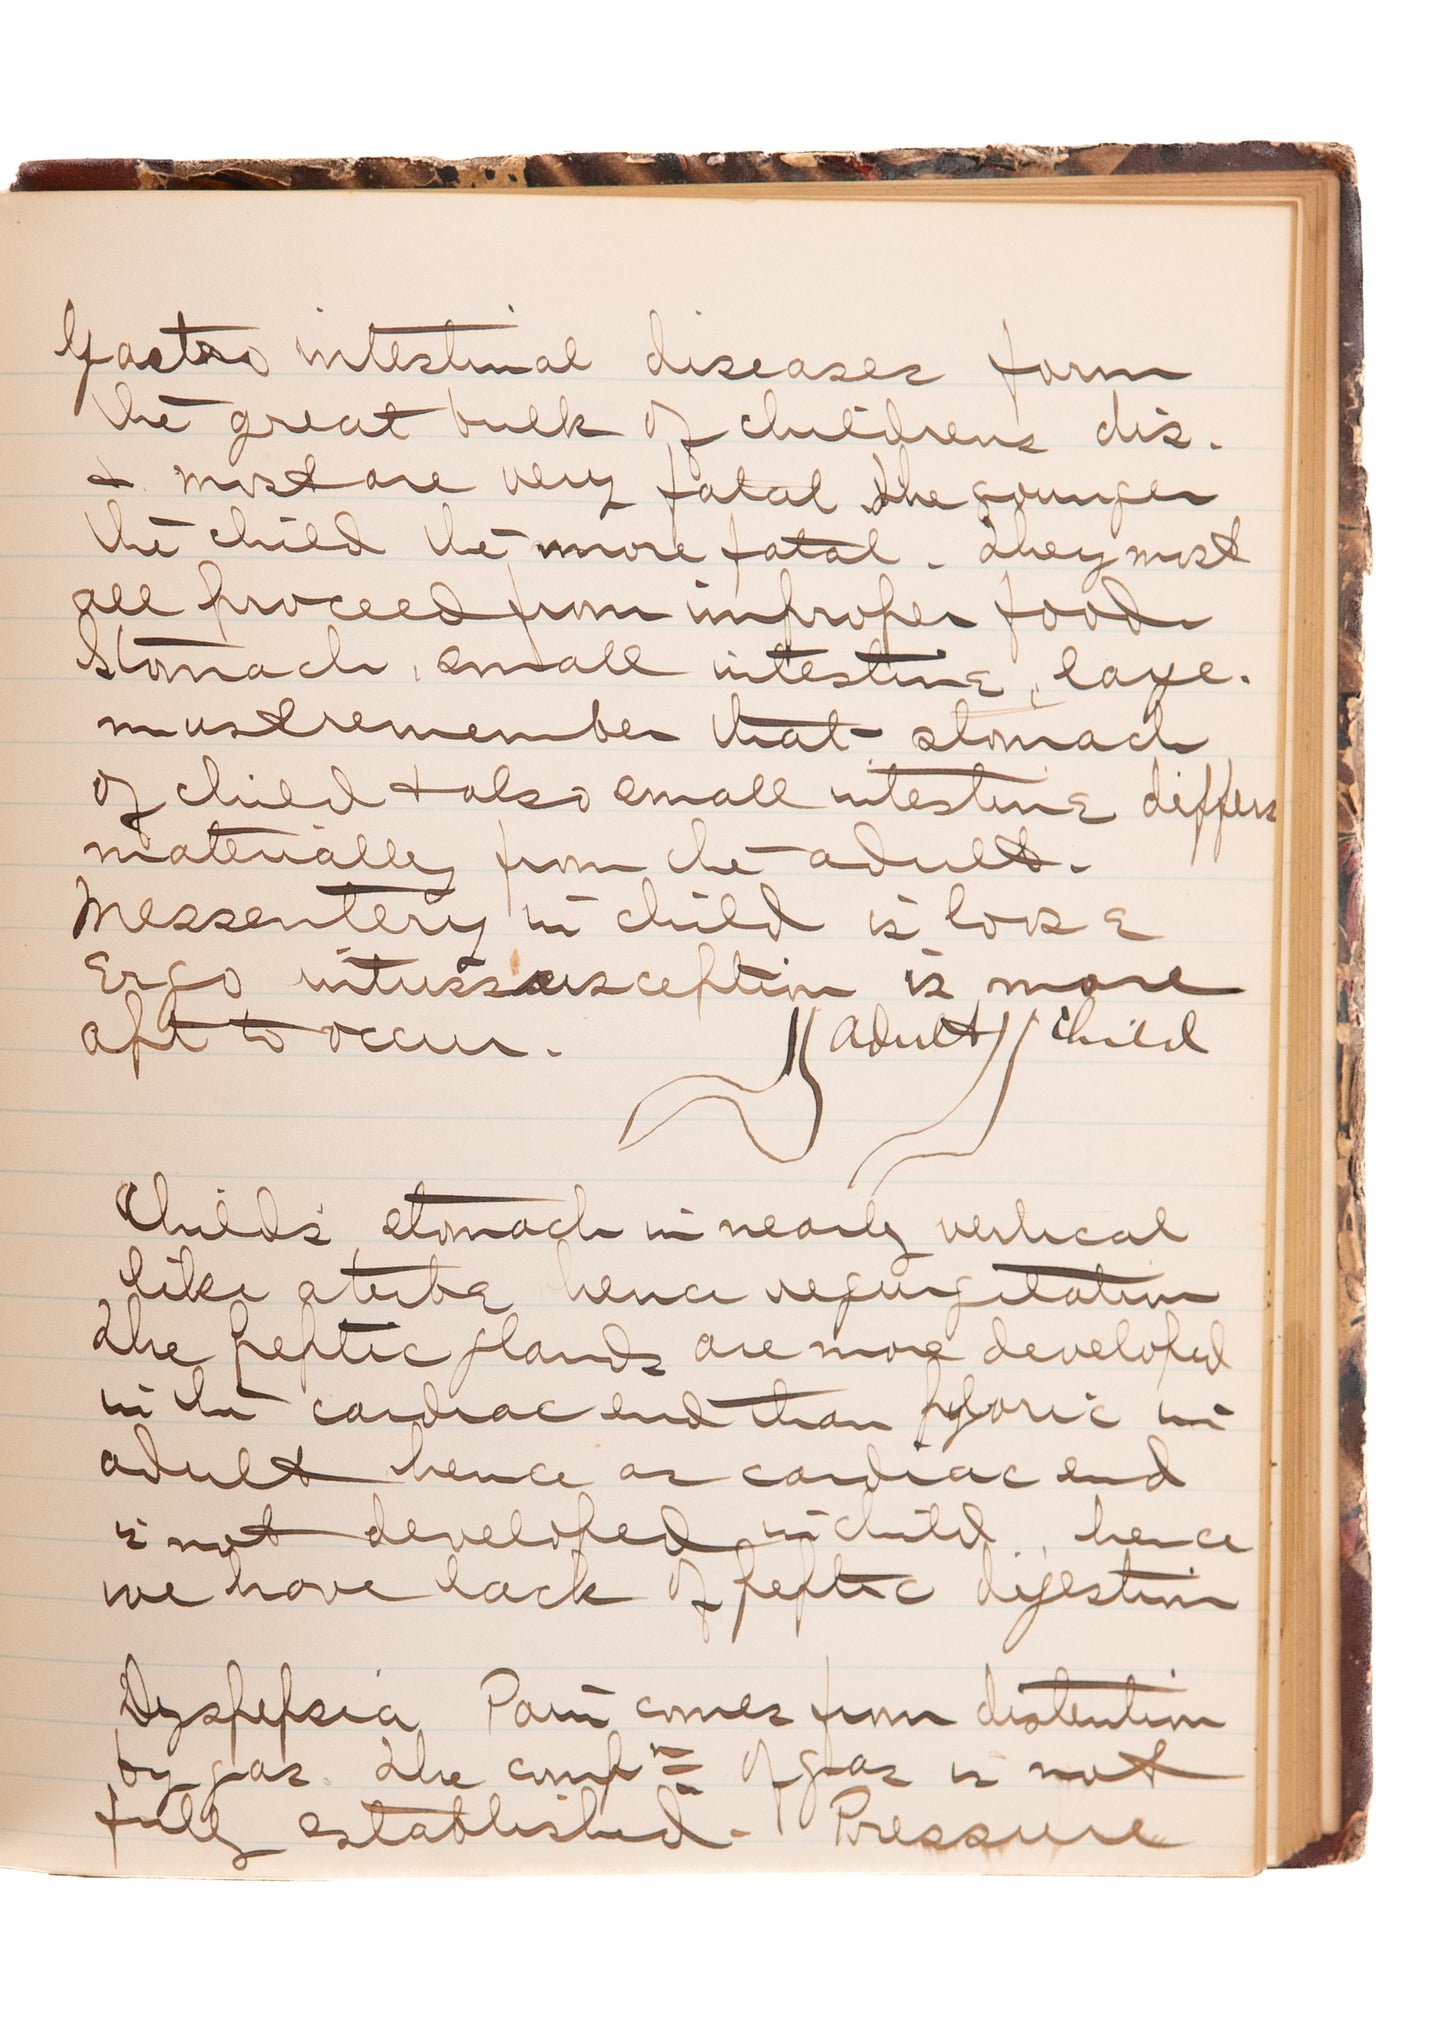 Gastro intestinal diseases form
the great bulk of childrens dis.
+ most are very fatal the younger
the child the more fatal. They most
all proceed from improper food
Stomach, small intestine, large.
must remember that stomach
of child + also small intestine differs
materially from the adult.
Messentery in child is loose
Ergo intussusception is more
apt to occur. Adult Child
Childs' stomach in nearly vertical
like a tube hence regurgitation
The peptic glands are more developed
in the cardiac end than pyloric in
adult hence as cardiac end
is not developed in child, hence
we have lack of peptic digestion
Dyspepsia Pain comes from distention
by gas. The comp<sup>n</sup> of gas is not
fully established. Pressure